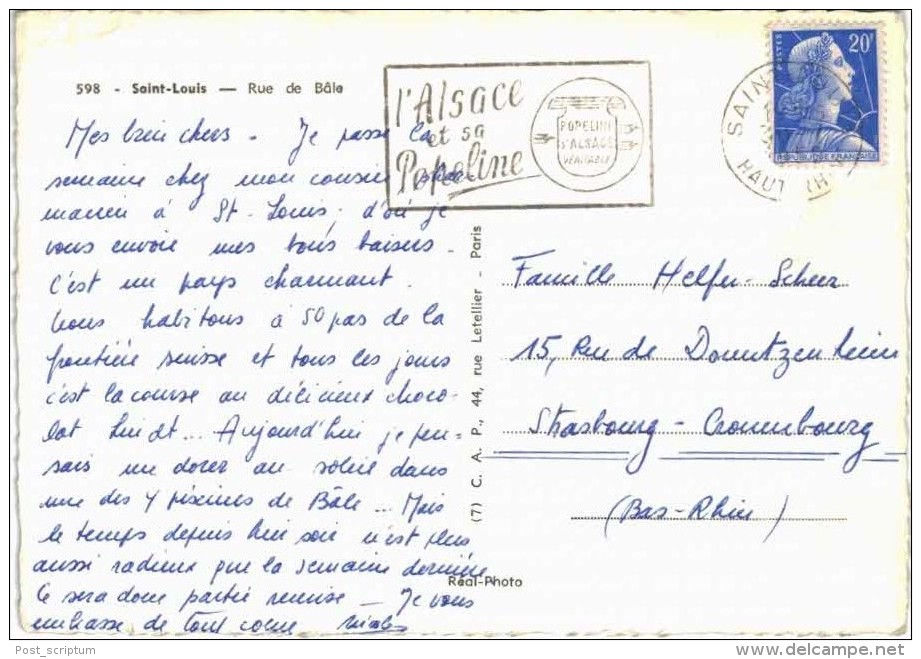 598 - Saint-Louis — Rue de Bâle
l'Alsace
et sa
Popeline
POPELINE
D'ALSACE
VÉRITABLE
POSTES
20F
REPUBLIQUE FRANÇAISE
SAINT
HAUT RH
Mes bien chers - Je passe la
semaine chez mon cousin
à St-Louis, d'où je
vous envoie mes bons baisers -
C'est un pays charmant.
Nous habitons à 50 pas de la
frontière suisse et tous les jours
c'est la course au délicieux choco-
lat Lindt... Aujourd'hui je pen-
sais me dorer au soleil dans
une des 4 piscines de Bâle... Mais
le temps depuis hier soir n'est plus
aussi radieux que la semaine dernière
Ce sera donc partie remise - Je vous
embrasse de tout coeur Nicole
(7) C. A. P., 44, rue Letellier - Paris
Réal-Photo
Famille Helfer-Scheer
15, Rue de Dountzenheim
Strasbourg - Cronenbourg
(Bas-Rhin)
Post_scriptum
delcampe.net